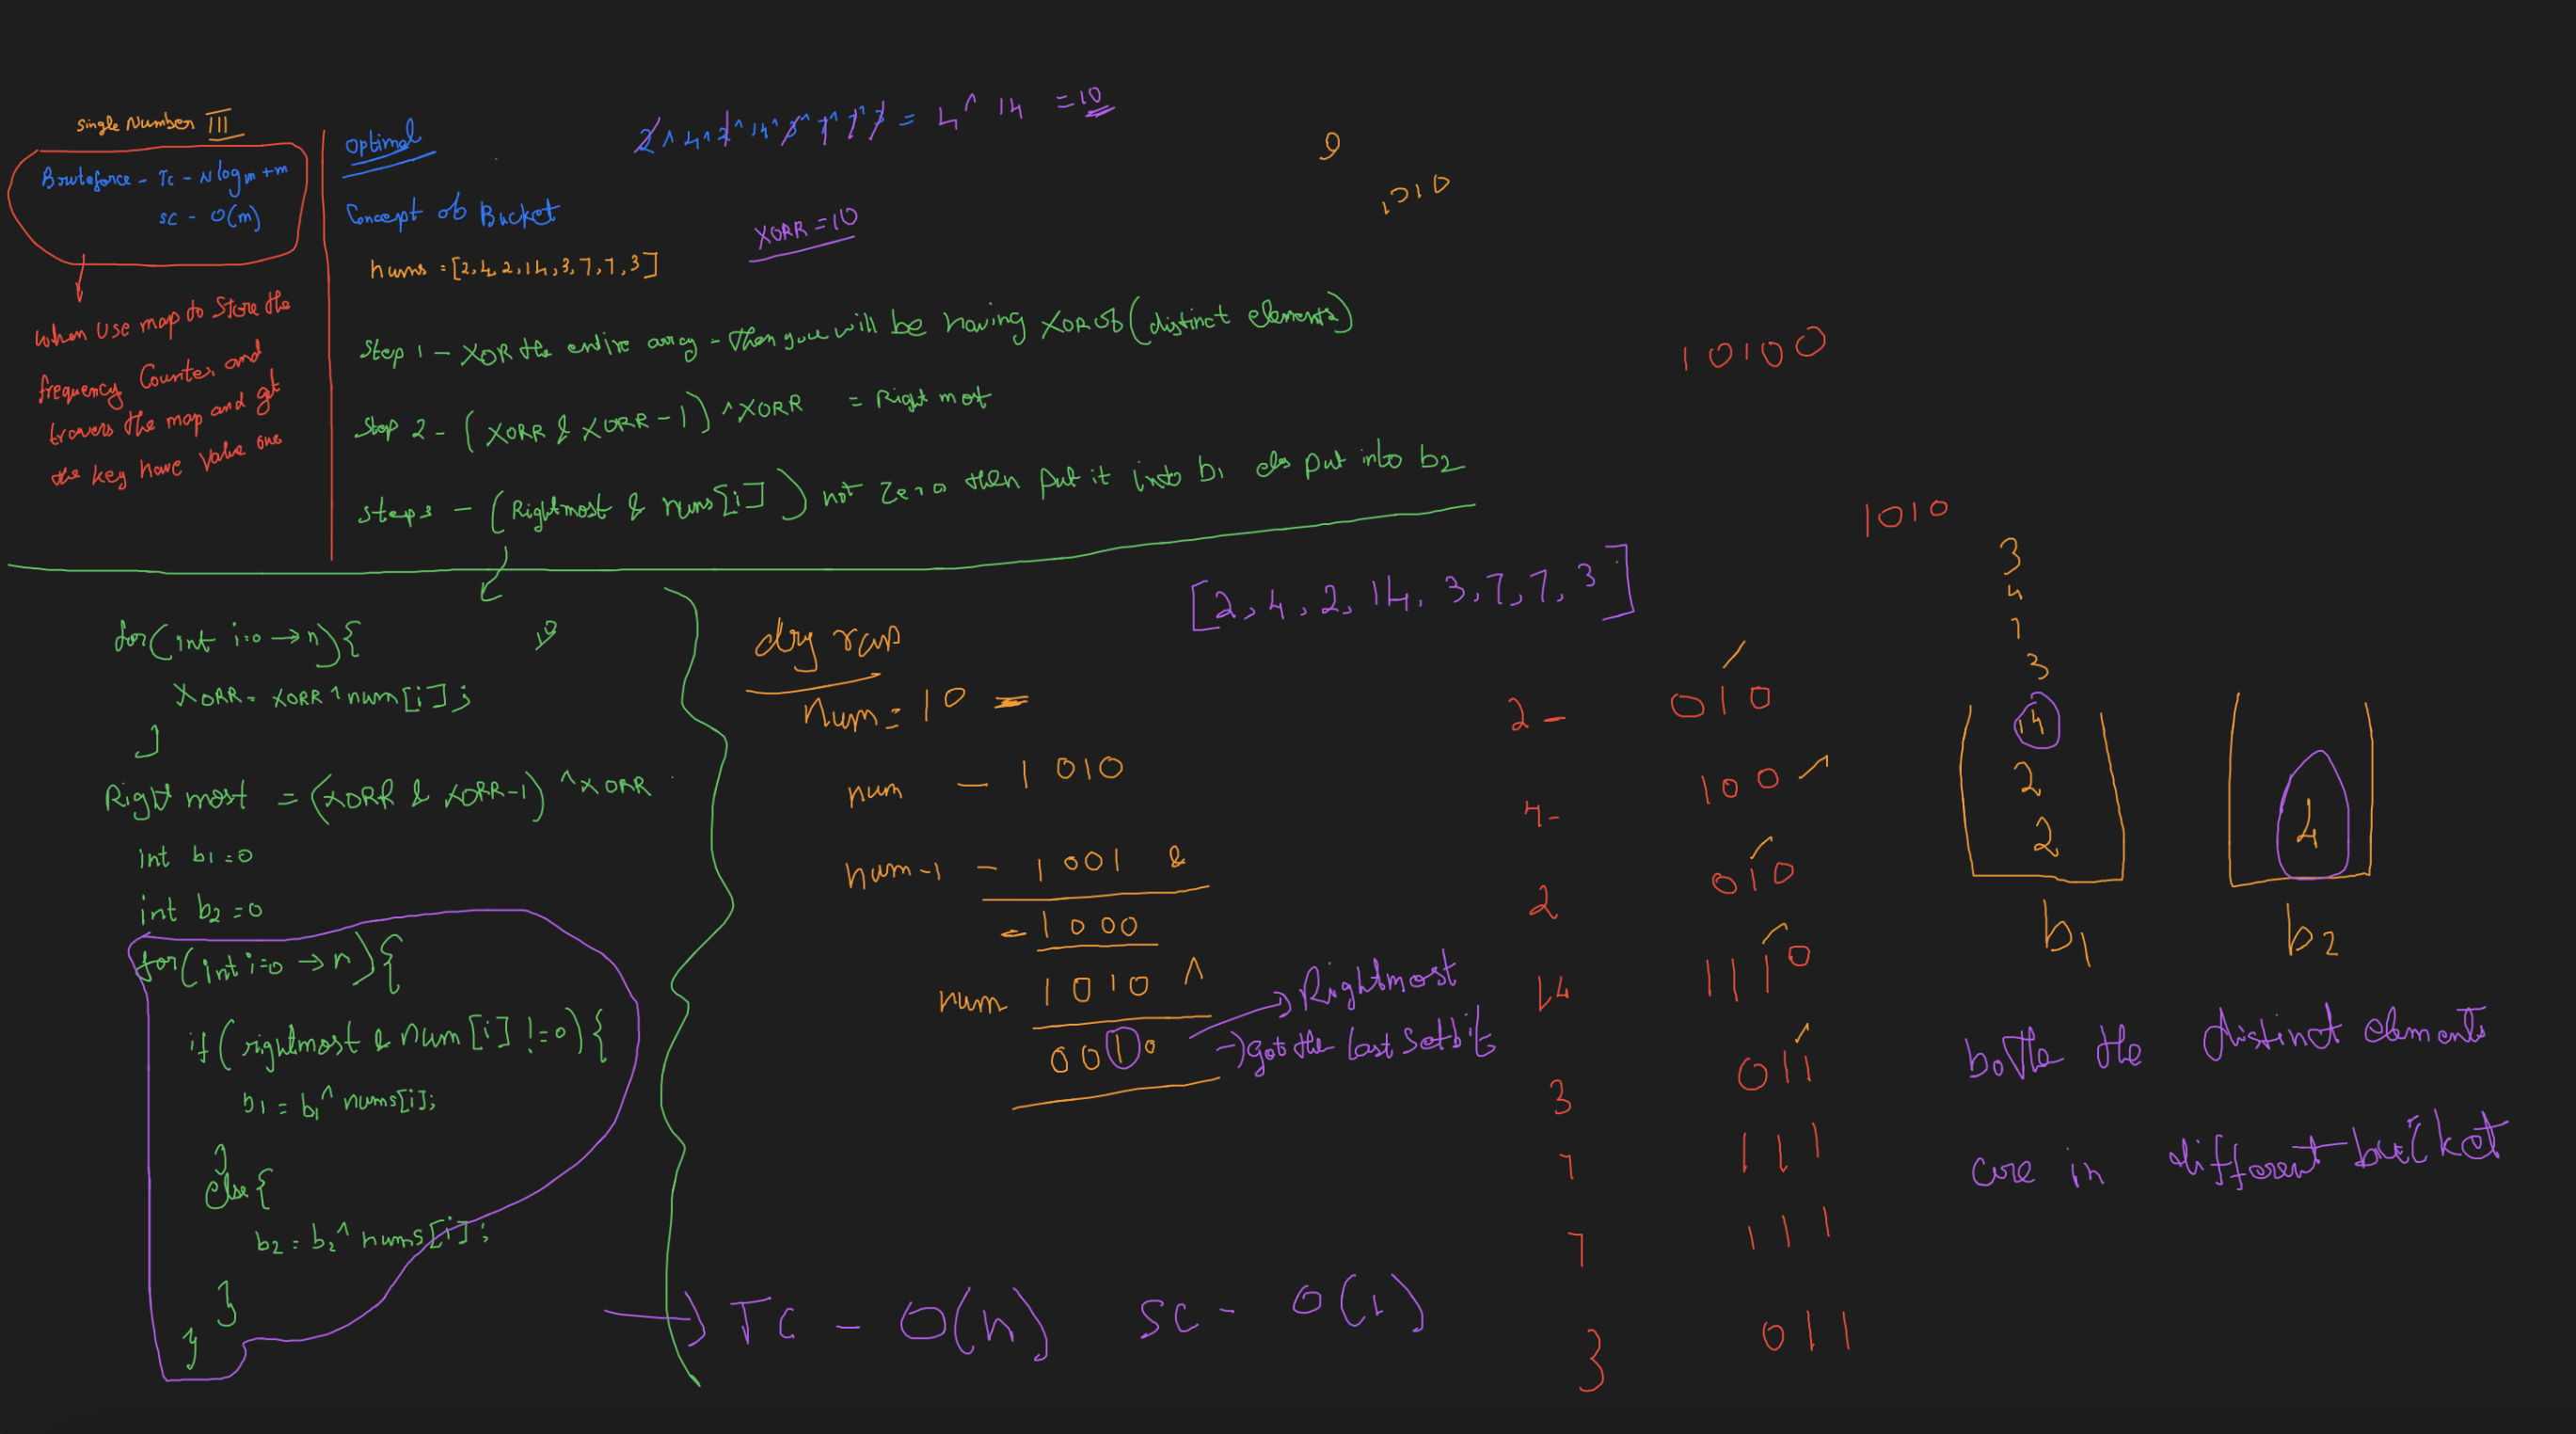 Single Number III
Bruteforce - Tc - N log m + m
SC - O(m)
When Use map to Store the
frequency Counter, and
travers the map and get
the key have Value one
Optimal
2^4^2^14^3^7^7^3 = 4^14 = 10
Concept of Bucket
XORR = 10
nums = [2,4,2,14,3,7,7,3]
Step 1 - XOR the entire array - then you will be having XOR of (distinct elements)
Step 2 - (XORR & XORR - 1) ^ XORR = Right most
Step 3 - (Rightmost & nums[i]) not Zero then put it into b1 els put into b2
9
1010
10100
1010
for(int i=0 → n){
XORR = XORR ^ num[i];
}
Right most = (XORR & XORR-1) ^ XORR
int b1 = 0
int b2 = 0
for(int i=0 → n){
if(rightmost & num[i] != 0){
b1 = b1 ^ nums[i];
}
else{
b2 = b2 ^ nums[i];
}
}
[2, 4, 2, 14, 3, 7, 7, 3]
dry run
Num = 10 =
num - 1010
num-1 - 1001 &
- 1000
num 1010 ^
0010
→ Rightmost
→ got the last Setbit
→ TC - O(n) SC - O(1)
2 - 010
4 - 100
2 010
14 1110
3 011
7 111
7 111
3 011
3
4
7
3
14
2
2
b1
4
b2
bothe the distinct elements
are in different bucket